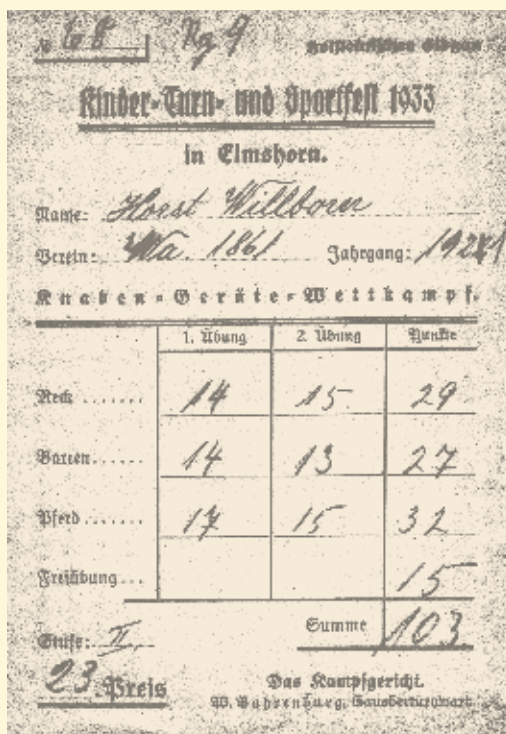 68 Rg 9
Kinder-Turn- und Sportfest 1933
in Elmshorn.
Name: Horst Willborn
Verein: Wa. 1861 Jahrgang: 1921
Knaben-Geräte-Wettkampf.
1. Übung 2. Übung Punkte
Reck ....... 14 15 29
Barren ...... 14 13 27
Pferd ....... 17 15 32
Freiübung ... 15
Stufe: II. Summe 103
23. Preis Das Kampfgericht.
W. Bahrenburg, Gauoberturnwart